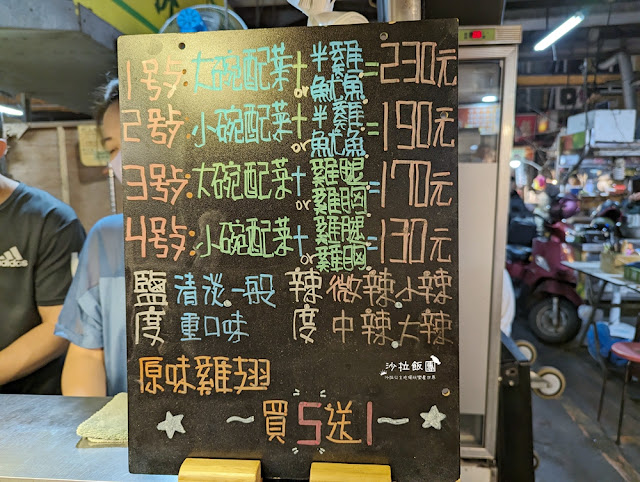 1號:大碗配菜+半雞or魷魚=230元
2號:小碗配菜+半雞or魷魚=190元
3號:大碗配菜+雞腿or雞胸=170元
4號:小碗配菜+雞腿or雞胸=130元
鹽度 清淡 一般 重口味
辣度 微辣 小辣 中辣 大辣
原味雞翅
~買5送1~
沙拉飯團
adidas